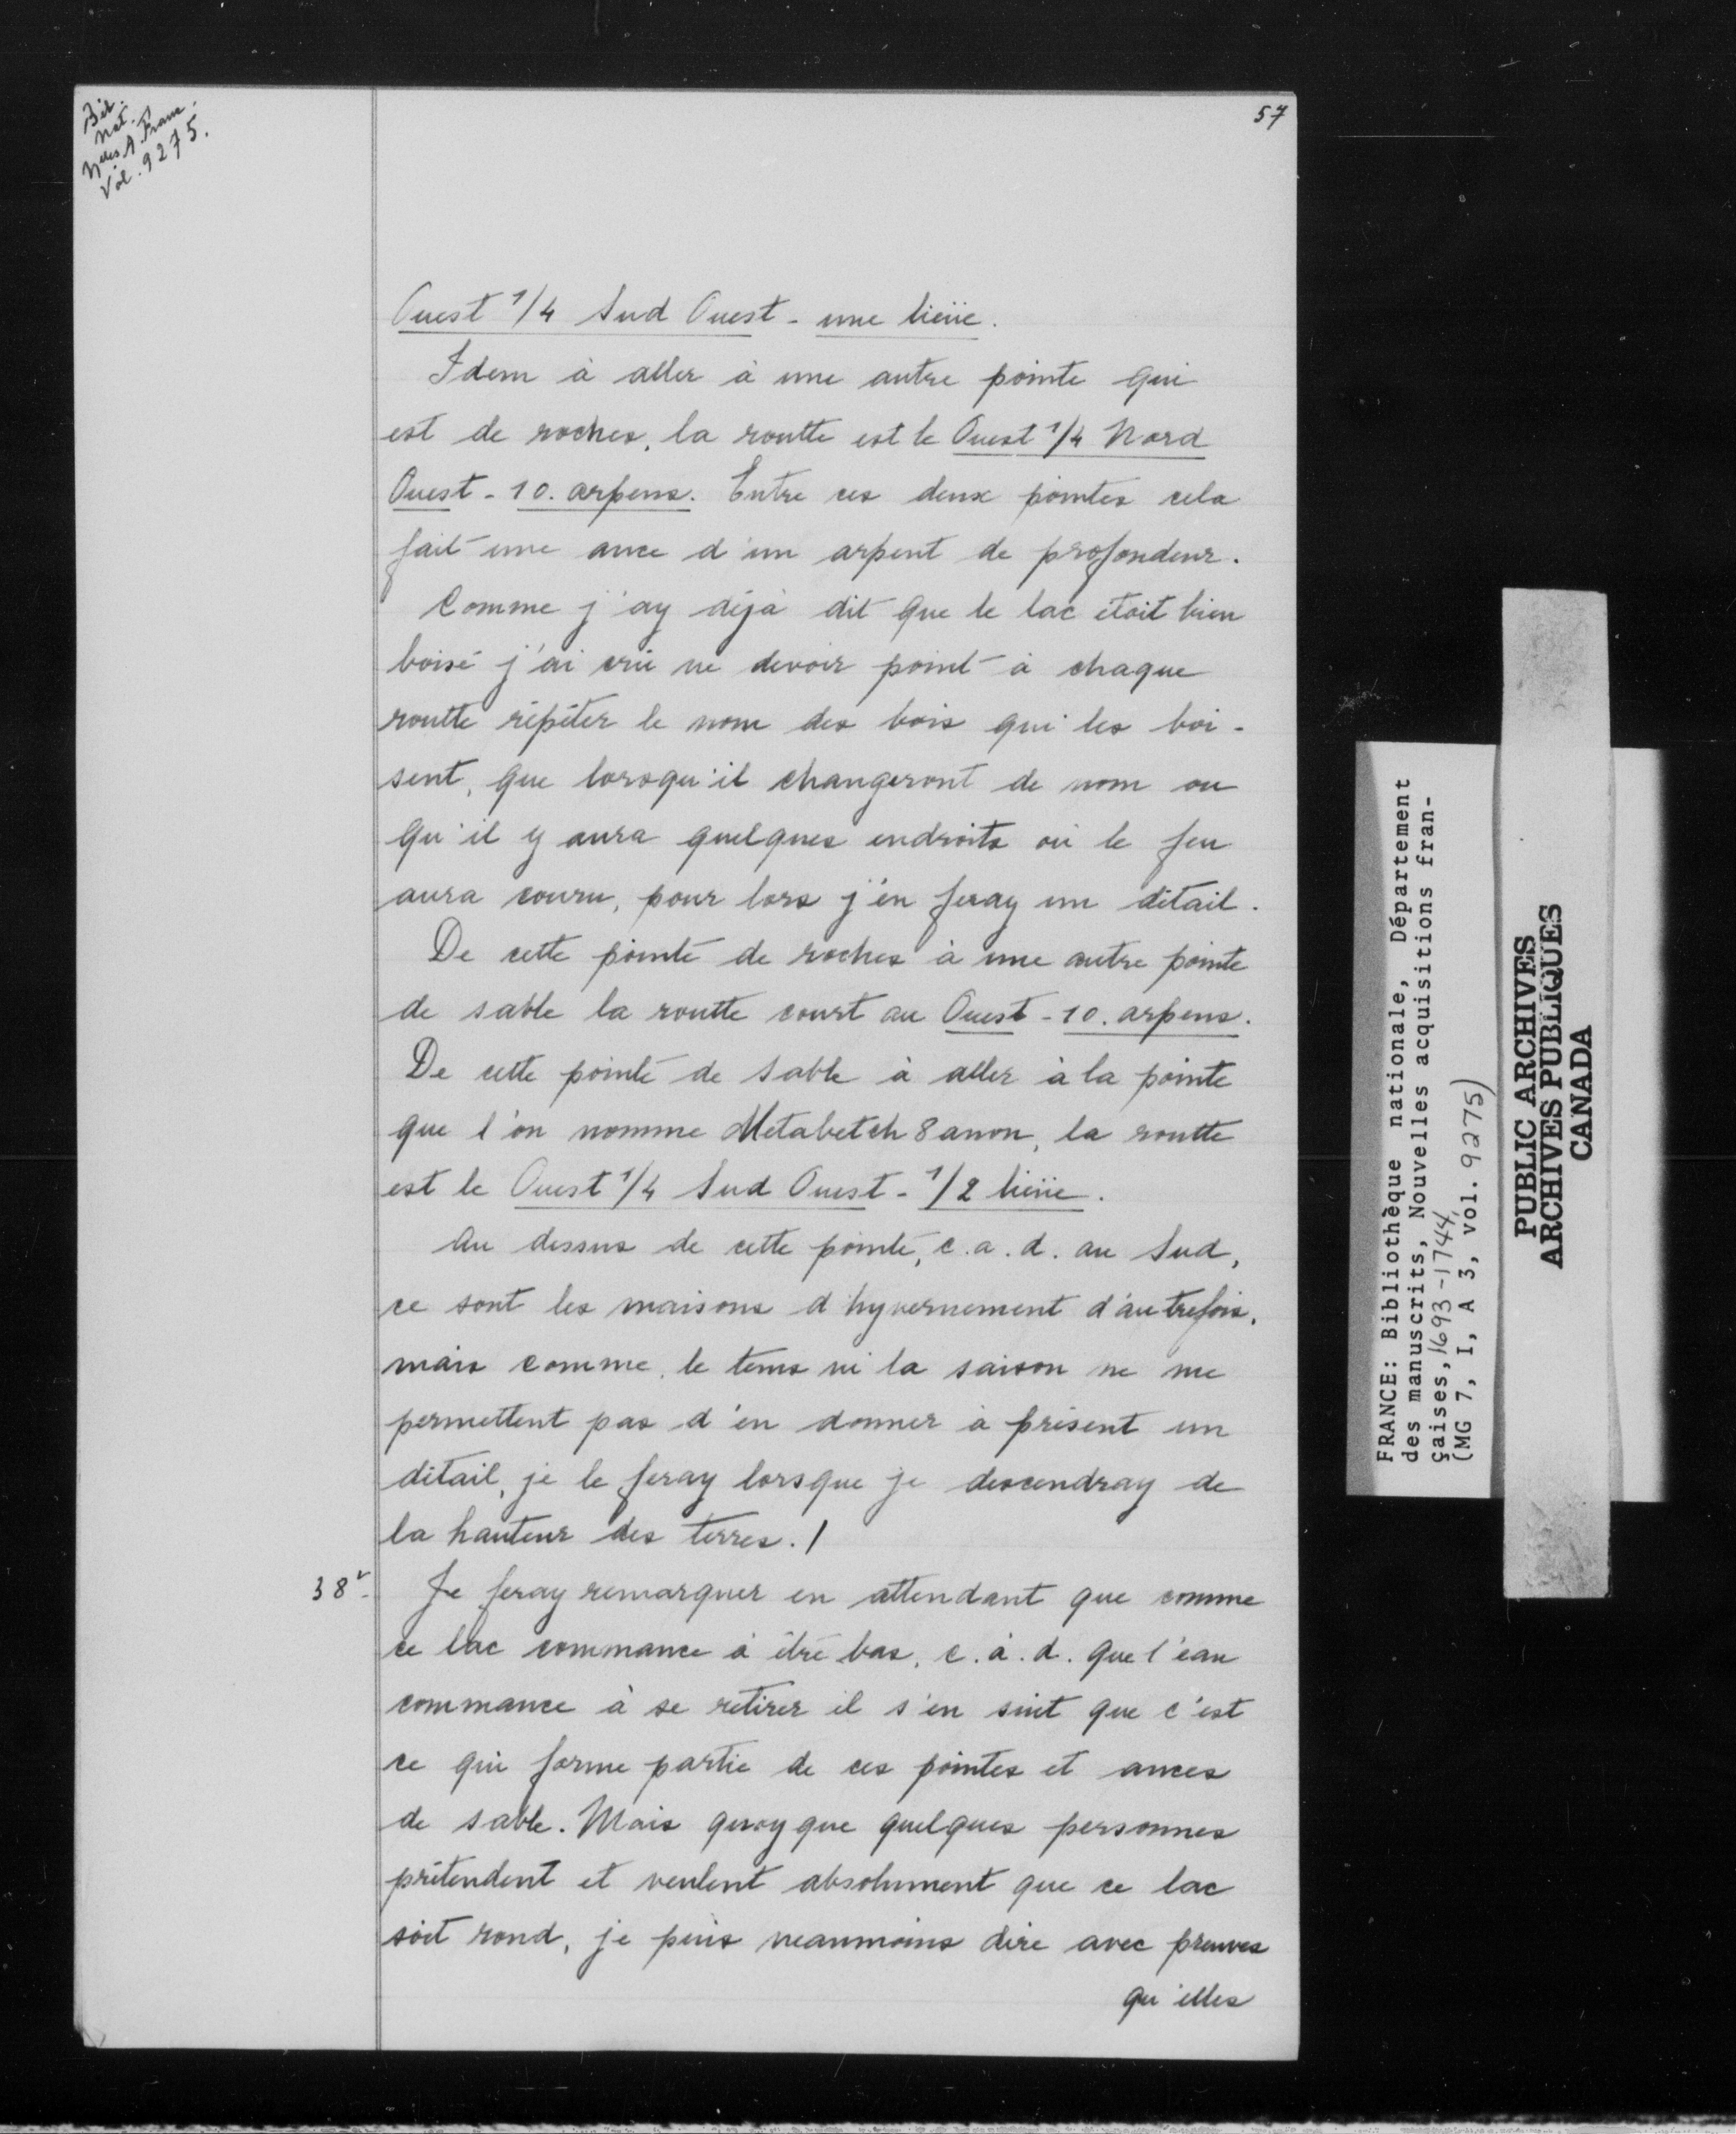 Bib.
Nat.
Nelles A. Franc.
Vol. 9275.
57
Ouest 1/4 Sud Ouest - une lieüe.
Idem à aller à une autre pointe qui
est de roches, la routte est le Ouest 1/4 Nord
Ouest - 10. arpens. Entre ces deux pointes cela
fait une ance d'un arpent de profondeur.
Comme j'ay déjà dit que le lac étoit bien
boisé j'ai crû ne devoir point à chaque
routte répéter le nom des bois qui les boi-
sent, que lorsqu'il changeront de nom ou
qu'il y aura quelques endroits où le feu
aura couru, pour lors j'en feray un détail.
De cette pointe de roches à une autre pointe
de sable la routte court au Ouest - 10. arpens.
De cette pointe de sable à aller à la pointe
que l'on nomme Metabetch8anon, la routte
est le Ouest 1/4 Sud Ouest - 1/2 lieüe.
Au dessus de cette pointe, c.a.d. au Sud,
ce sont les maisons d'hyvernement d'autrefois,
mais comme le tems ni la saison ne me
permettent pas d'en donner à présent un
détail, je le feray lorsque je descendray de
la hauteur des terres. /
38v. Je feray remarquer en attendant que comme
ce lac commance à être bas, c.à.d. que l'eau
commance à se retirer il s'en suit que c'est
ce qui forme partie de ces pointes et ances
de sable. Mais quoyque quelques personnes
prétendent et veulent absolument que ce lac
soit rond, je puis neanmoins dire avec preuves
qu'elles
FRANCE: Bibliothèque nationale, Département
des manuscrits, Nouvelles acquisitions fran-
çaises, 1693-1744
(MG 7, I, A 3, vol. 9275)
PUBLIC ARCHIVES
ARCHIVES PUBLIQUES
CANADA